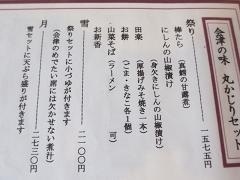 会津の味 丸かじりセット
祭り 一五七五
棒たら（真鱈の甘露煮）
にしんの山椒漬け
（身欠きにしんの山椒漬け）
田楽（厚揚げみそ焼き一本）
お餅（ごま・きなこ各1個）
山菜そば（ラーメン 可）
お新香
雪 二一〇〇
祭りセットに小づゆが付きます
（会津のめでたい席には欠かせない煮汁）
月 二七三〇
雪セットに天ぷら盛りが付きます